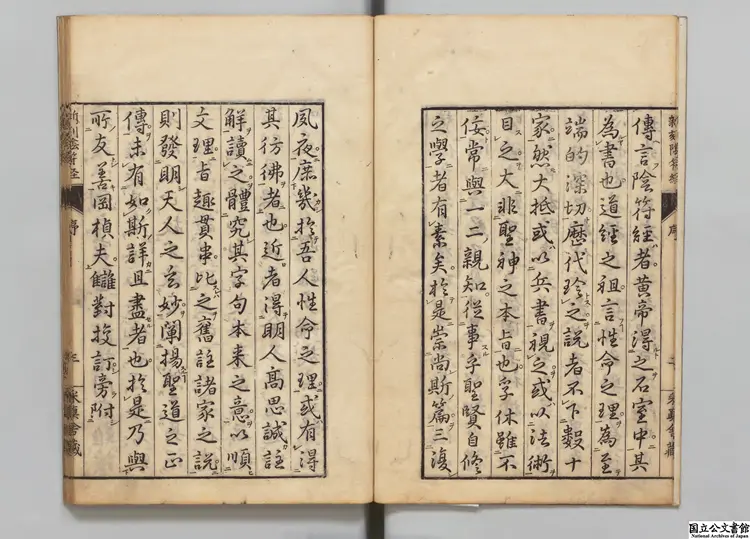 傳言陰符經者黃帝得之石室中其
為書也道經之祖言性命之理為至
端的深切歷代珍之說者不下數十
家然大抵或以兵書視之或以法術
目之大非聖神之本旨也孚休雖不
佞常與一二親知從事乎聖賢自修
之學者有素矣於是崇尚斯篇三復
夙夜庶幾於吾人性命之理或有得
其彷彿者也近者得明人高思誠註
解讀之體究其字句本来之意以順
文理旨趣貫串比之舊註諸家之說
則發明天人之玄妙闡揚聖道之正
傳未有如斯詳且盡者也於是乃與
所友善岡楨夫讎對挍訂旁附
新刻陰符經
序
三
国立公文書館
National Archives of Japan